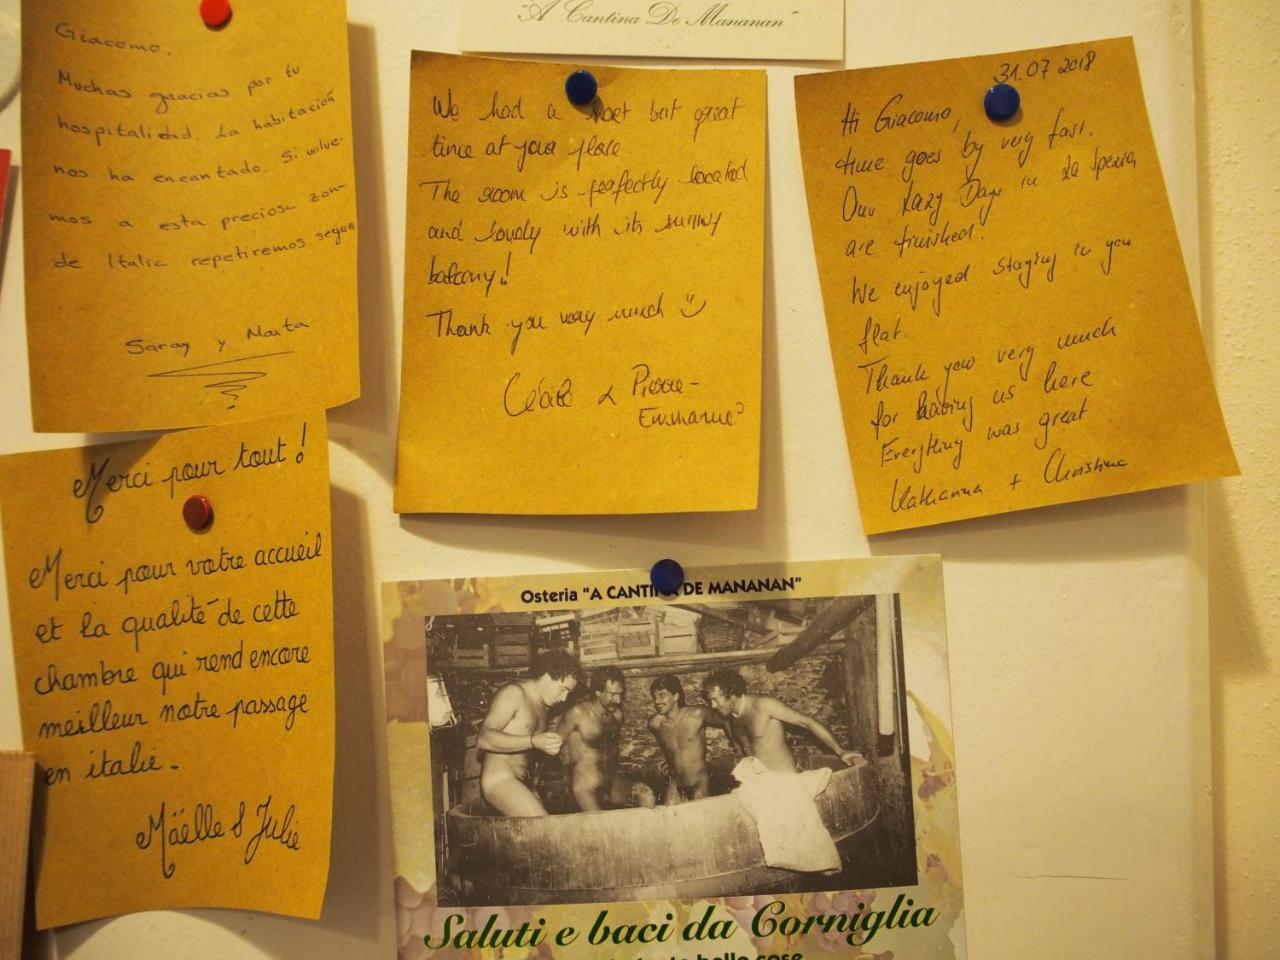 "A Cantina De Mananan"
Giacomo,
Muchas gracias por tu
hospitalidad. La habitación
nos ha encantado. Si volve-
mos a esta preciosa zon-
de Italia repetiremos segun
Saray y Marta
We had a short but great
time at your place.
The room is perfectly located
and lovely with its sunny
balcony!
Thank you very much
Cécile & Pierre-
Emmanuel
31.07 2018
Hi Giacomo,
time goes by very fast.
Our Lazy Days in La Spezia
are finished.
We enjoyed staying in you
flat.
Thank you very much
for having us here
Everything was great
Katharina + Christina
Merci pour tout !
Merci pour votre accueil
et la qualité de cette
chambre qui rend encore
meilleur notre passage
en italie.
Maëlle & Julie
Osteria "A CANTINA DE MANANAN"
Saluti e baci da Corniglia
belle cose